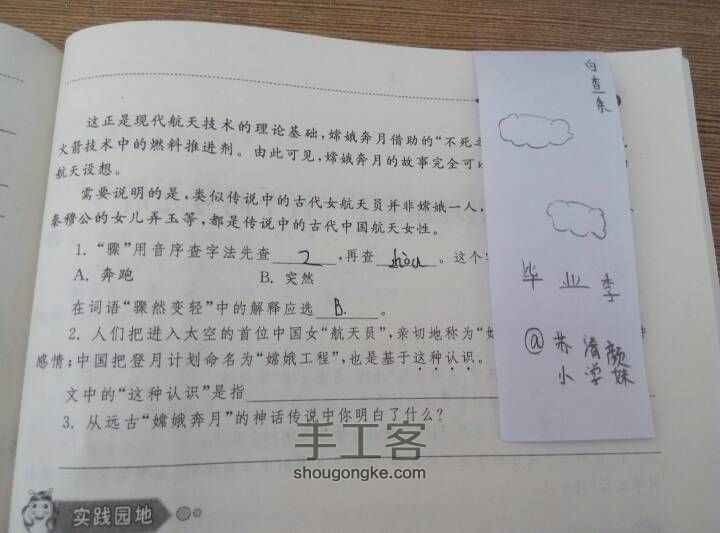 这正是现代航天技术的理论基础，嫦娥奔月借助的“不死
火箭技术中的燃料推进剂。由此可见，嫦娥奔月的故事完全可
航天设想。
需要说明的是，类似传说中的古代女航天员并非嫦娥一人，
秦穆公的女儿弄玉等，都是传说中的古代中国航天女性。
1. “骤”用音序查字法先查 Z ，再查 zhòu 。这个
A. 奔跑 B. 突然
在词语“骤然变轻”中的解释应选 B. 。
2. 人们把进入太空的首位中国女“航天员”，亲切地称为“
感情；中国把登月计划命名为“嫦娥工程”，也是基于这种认识。
文中的“这种认识”是指
3. 从远古“嫦娥奔月”的神话传说中你明白了什么？
实践园地
毕业季
@苏清颜
小学妹
手工客
shougongke.com